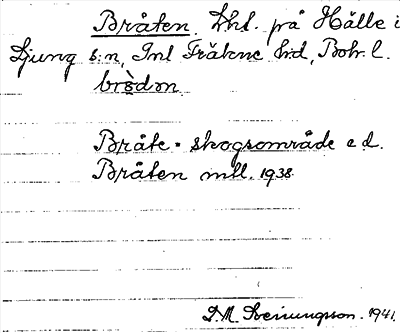 Bråten. Lht. på Hälle i
Ljung s:n, Inl Fräkne h:d, Boh. l.
bròdn
Bråte = skogsområde e.d.
Bråten mtl. 1938.
D.M. Sveinungson. 1941.